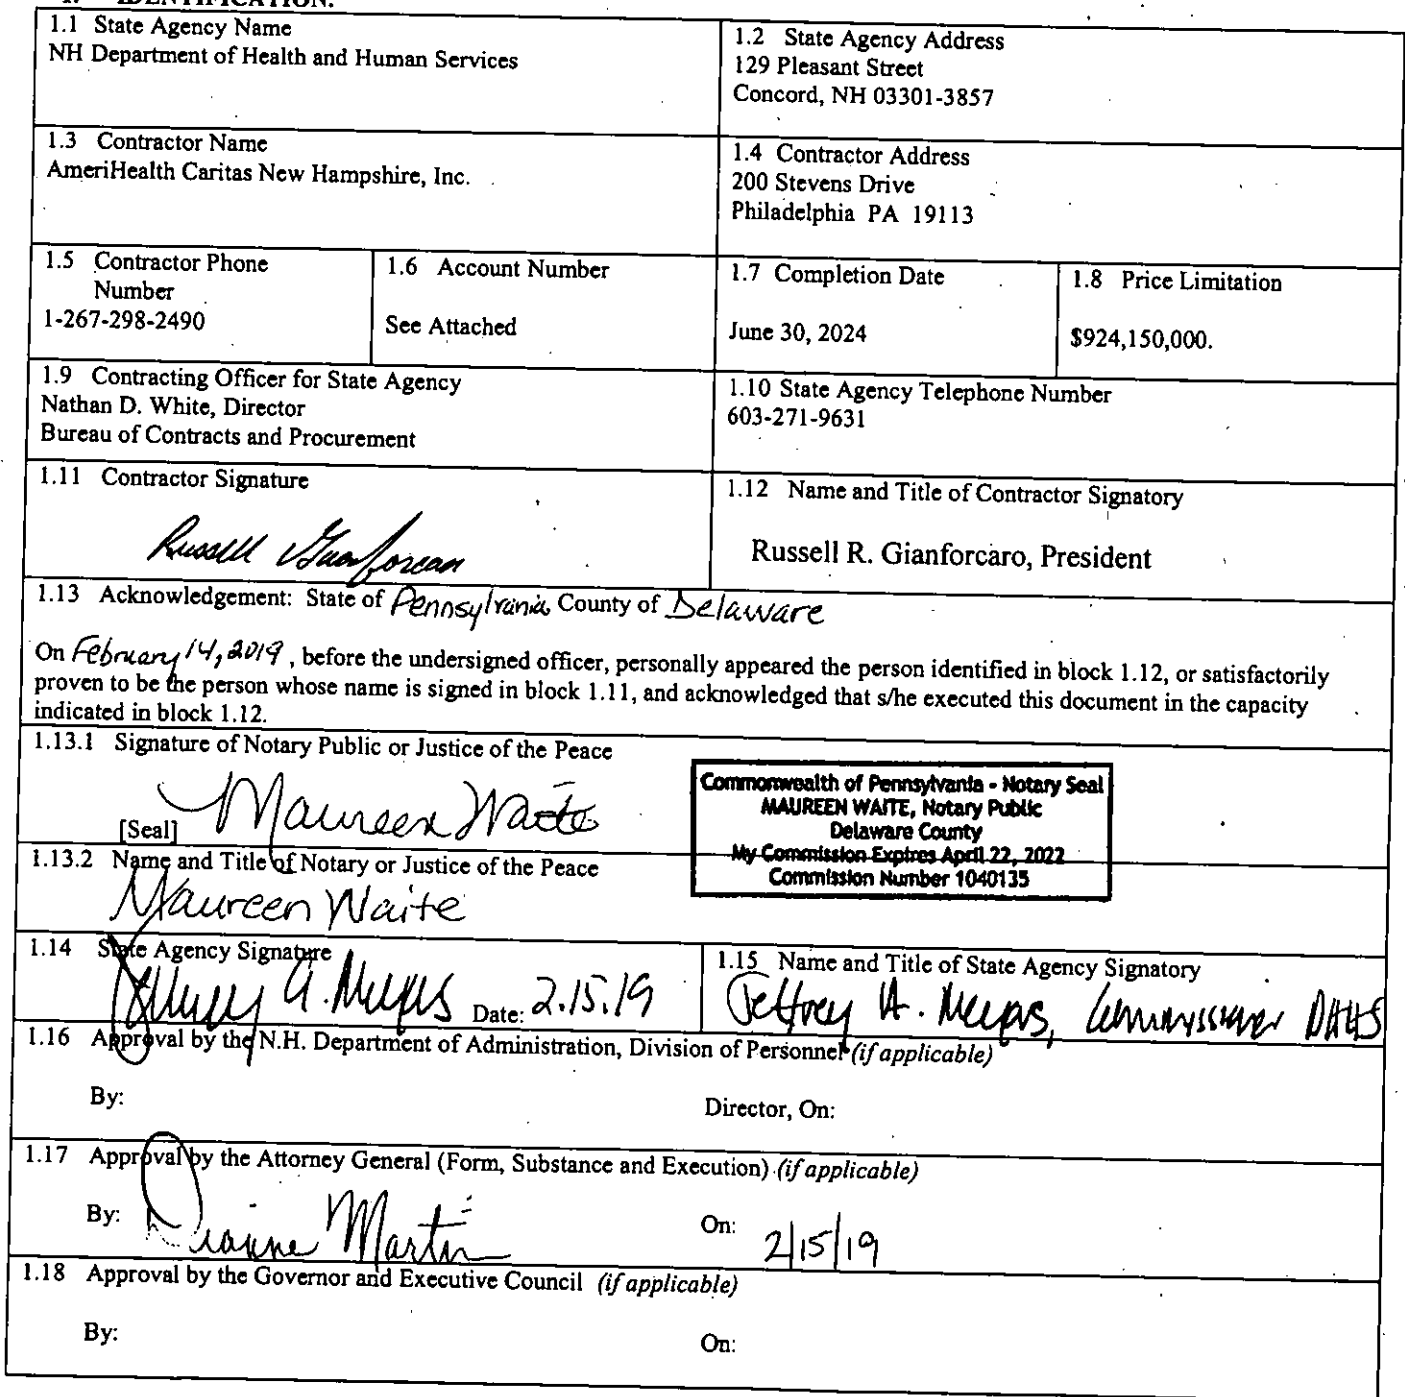 1. IDENTIFICATION.
1.1 State Agency Name
NH Department of Health and Human Services
1.2 State Agency Address
129 Pleasant Street
Concord, NH 03301-3857
1.3 Contractor Name
AmeriHealth Caritas New Hampshire, Inc.
1.4 Contractor Address
200 Stevens Drive
Philadelphia PA 19113
1.5 Contractor Phone
Number
1-267-298-2490
1.6 Account Number
See Attached
1.7 Completion Date
June 30, 2024
1.8 Price Limitation
$924,150,000.
1.9 Contracting Officer for State Agency
Nathan D. White, Director
Bureau of Contracts and Procurement
1.10 State Agency Telephone Number
603-271-9631
1.11 Contractor Signature
Russell Gianforcaro
1.12 Name and Title of Contractor Signatory
Russell R. Gianforcaro, President
1.13 Acknowledgement: State of Pennsylvania County of Delaware
On February 14, 2019, before the undersigned officer, personally appeared the person identified in block 1.12, or satisfactorily
proven to be the person whose name is signed in block 1.11, and acknowledged that s/he executed this document in the capacity
indicated in block 1.12.
1.13.1 Signature of Notary Public or Justice of the Peace
[Seal] Maureen Waite
Commonwealth of Pennsylvania - Notary Seal
MAUREEN WAITE, Notary Public
Delaware County
My Commission Expires April 22, 2022
Commission Number 1040135
1.13.2 Name and Title of Notary or Justice of the Peace
Maureen Waite
1.14 State Agency Signature
Jeffrey A. Meyers Date: 2.15.19
1.15 Name and Title of State Agency Signatory
Jeffrey A. Meyers, Commissioner DHHS
1.16 Approval by the N.H. Department of Administration, Division of Personnel (if applicable)
By:
Director, On:
1.17 Approval by the Attorney General (Form, Substance and Execution) (if applicable)
By: Dianne Martin
On: 2/15/19
1.18 Approval by the Governor and Executive Council (if applicable)
By:
On: